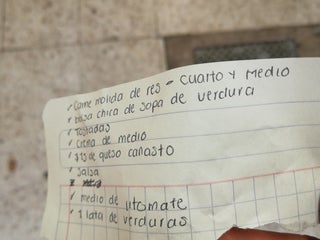 - Carne molida de res - cuarto y medio
- bolsa chica de sopa de verdura
- Tostadas
- Crema de medio
- $15 de queso canasto
- Salsa
- medio de jitomate
- 1 lata de verduras